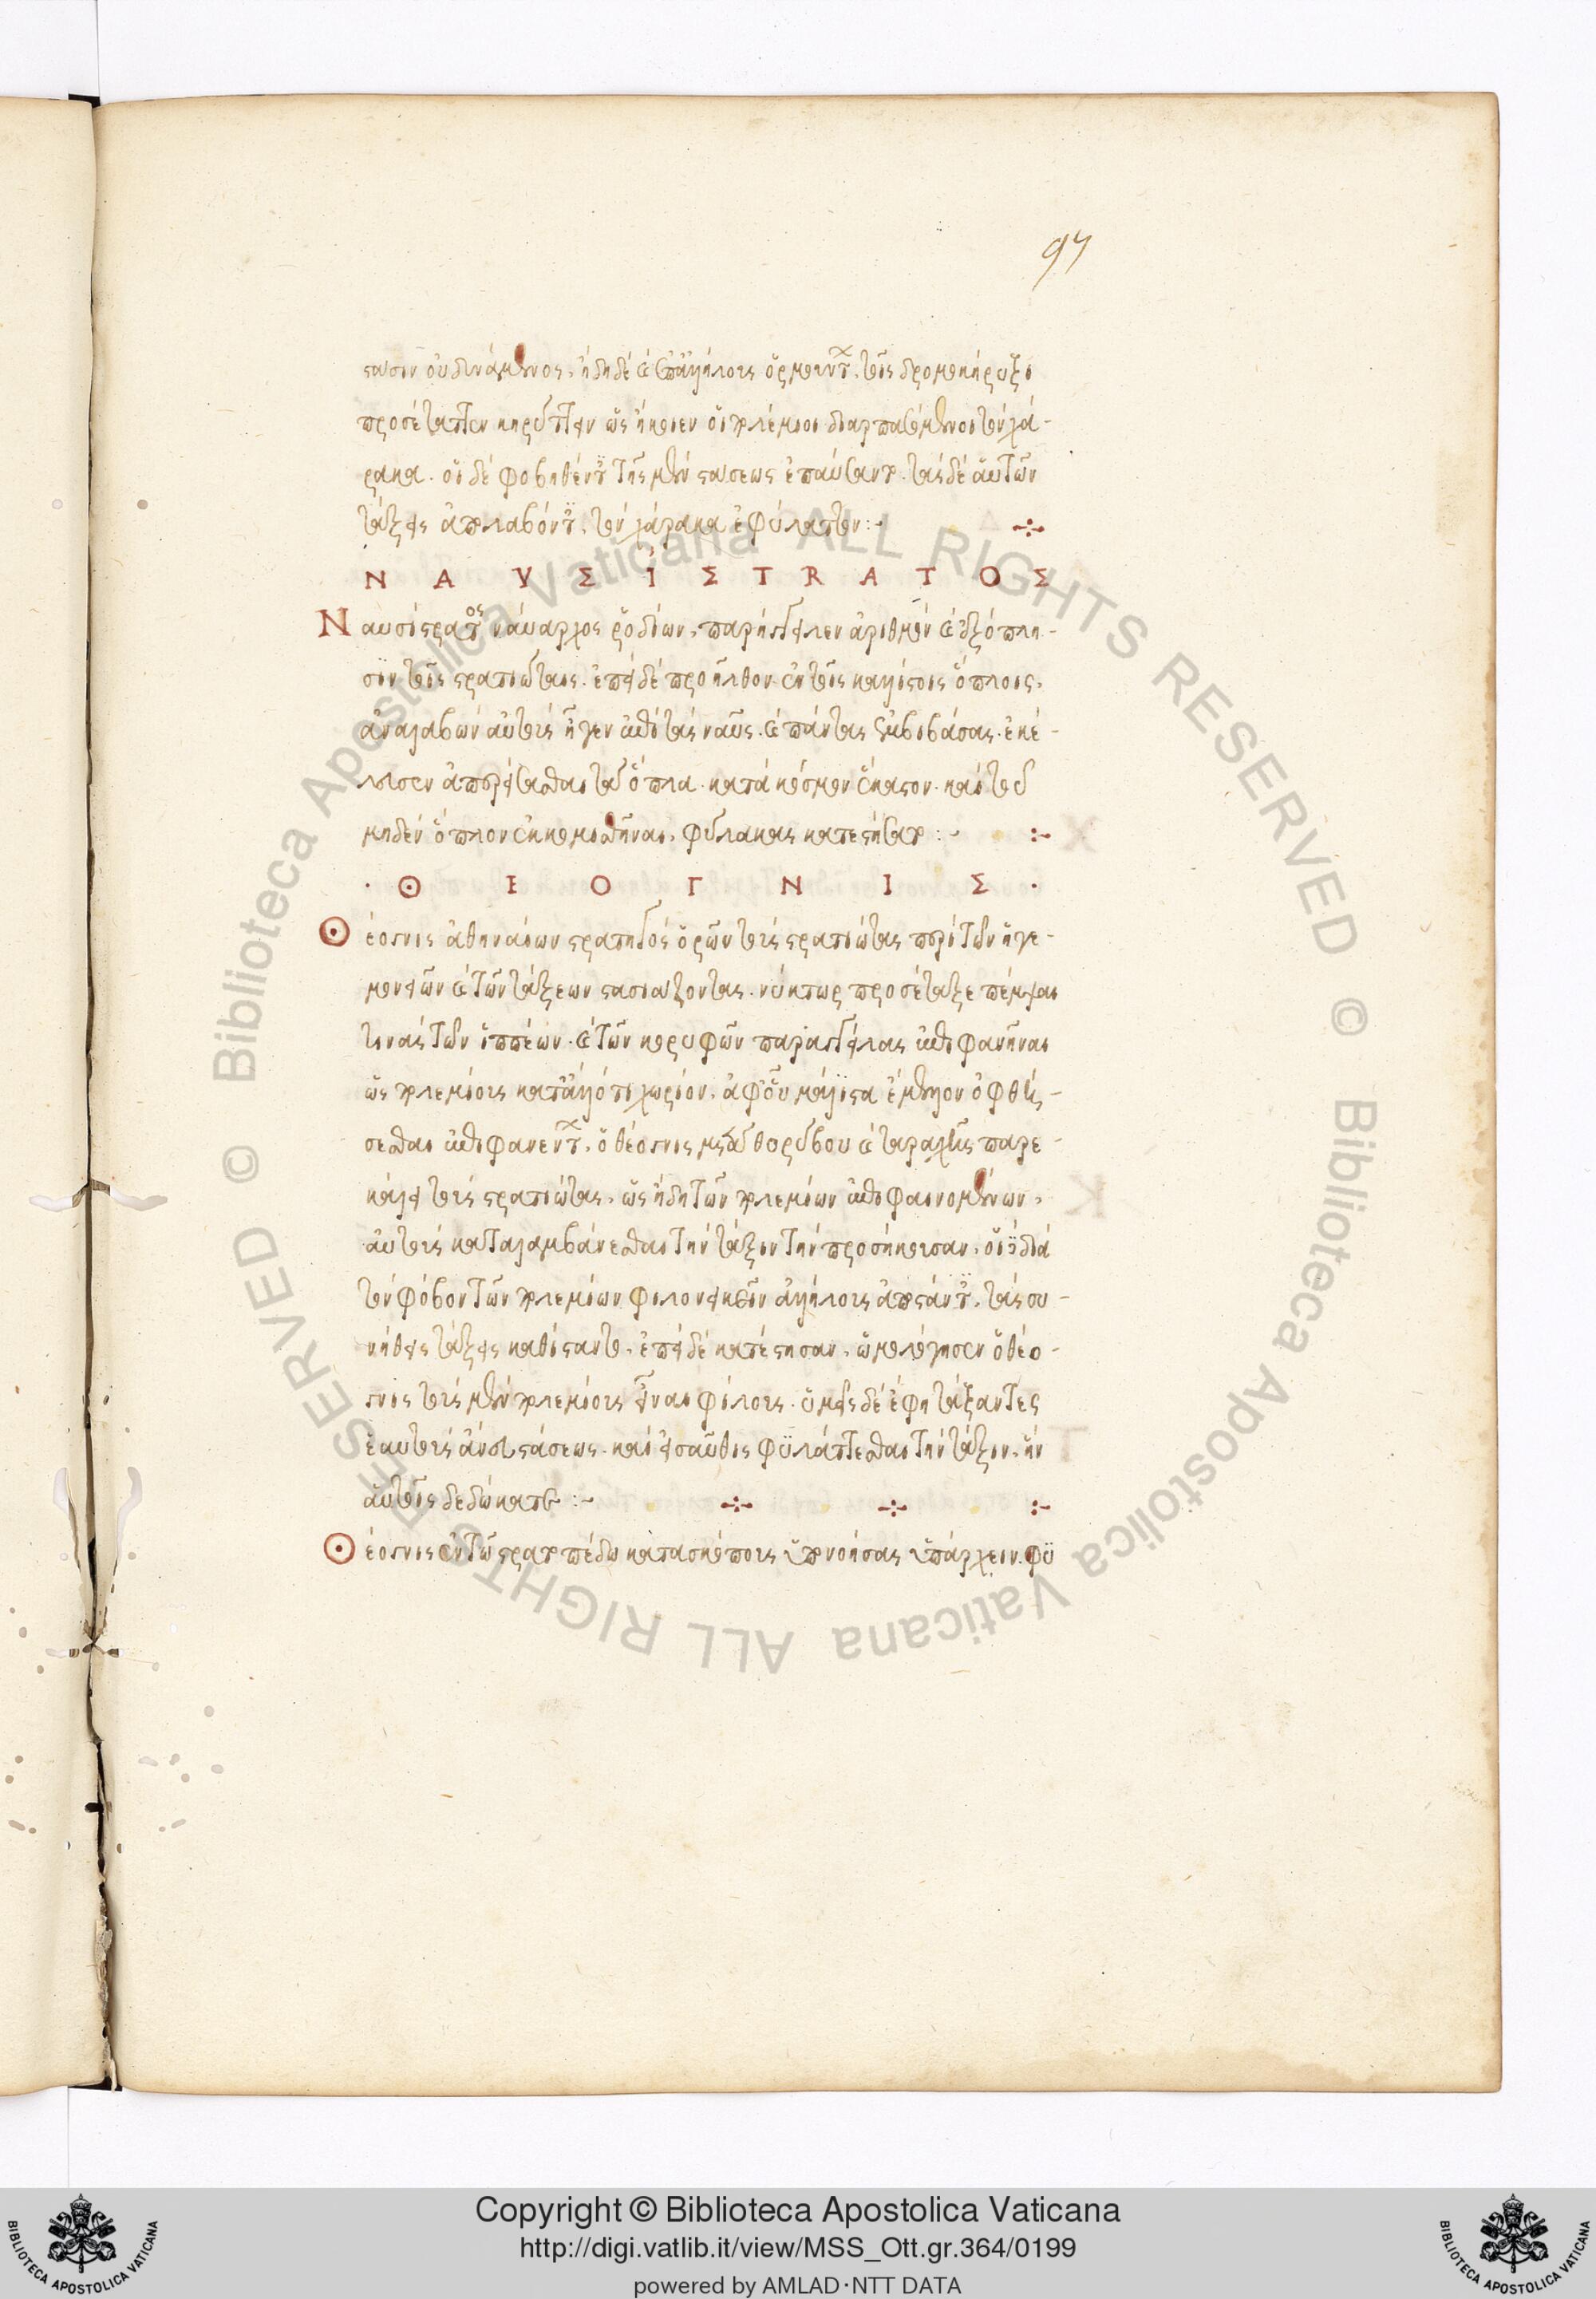 97
στάσιν οὐ δυνάμενος, ἤδη δὲ καὶ ἐπ' ἀλλήλους ὁρμώντων, τοῖς δρομοκήρυξι
προσέταττεν κηρύττειν ὡς ἥκοιεν οἱ πολέμιοι διαρπασόμενοι τὸν χά-
ρακα. οἱ δὲ φοβηθέντες τῆς μὲν στάσεως ἐπαύσαντο. τὰς δὲ αὐτῶν
τάξεις ἀπολαβόντες, τὸν χάρακα ἐφύλαττον :~
ΝΑΥΣΙΣΤRΑΤΟΣ
Ναυσίστρατος ναύαρχος ῥοδίων, παρήγγειλεν ἀριθμὸν καὶ ἐξόπλη-
σιν τοῖς στρατιώταις. ἐπεὶ δὲ προῆλθον ἐν τοῖς καλλίστοις ὅπλοις,
ἀναλαβὼν αὐτοὺς ἦγεν ἐπὶ τὰς ναῦς. καὶ πάντας ἐμβιβάσας. ἐκέ-
λευσεν ἀποθέσθαι τὰ ὅπλα. κατὰ κόσμον ἕκαστον. καὶ τοῦ
μηδὲν ὅπλον ἐκκομισθῆναι, φύλακας κατεστήσατο :~ :~
· Θ Ε Ο Γ Ν Ι Σ ·
Θέογνις ἀθηναίων στρατηγὸς ὁρῶν τοὺς στρατιώτας περὶ τῶν ἡγε-
μονειῶν καὶ τῶν τάξεων στασιάζοντας. νύκτωρ προσέταξε πέμψαι
τινὰς τῶν ἱππέων. καὶ τῶν κορυφῶν παραγγείλας ἐπιφανῆναι
ὡς πολεμίους κατ' ἄλλό τι χωρίον, ἀφ' οὗ μάλιστα ἔμελλον ὀφθή-
σεσθαι ἐπιφανέντων, ὁ θέογνις μετὰ θορύβου καὶ ταραχῆς παρε-
κάλει τοὺς στρατιώτας, ὡς ἤδη τῶν πολεμίων ἐπιφαινομένων,
αὐτοὺς καταλαμβάνεσθαι τὴν τάξιν τὴν προσήκουσαν, οἱ δὲ διὰ
τὸν φόβον τῶν πολεμίων φιλονεικεῖν ἀλλήλοις ἀποστάντες, τὰς συ-
νήθεις τάξεις καθίσταντο, ἐπεὶ δὲ κατέστησαν, ὡμολόγησεν ὁ θέο-
γνις τοὺς μὲν πολεμίους εἶναι φίλους. ὑμεῖς δὲ ἔφη τάξαντες
ἑαυτοὺς ἄνευ στάσεως. καὶ εἰσαῦθις φυλάττεσθαι τὴν τάξιν, ἣν
αὑτοῖς δεδώκατε :~ :~
Θέογνις ἐν τῷ στρατοπέδῳ κατασκόπους ὑπονοήσας ὑπάρχειν. φυ
Copyright © Biblioteca Apostolica Vaticana
http://digi.vatlib.it/view/MSS_Ott.gr.364/0199
powered by AMLAD·NTT DATA
BIBLIOTECA APOSTOLICA VATICANA
BIBLIOTECA APOSTOLICA VATICANA
© Biblioteca Apostolica Vaticana ALL RIGHTS RESERVED
© Biblioteca Apostolica Vaticana ALL RIGHTS RESERVED